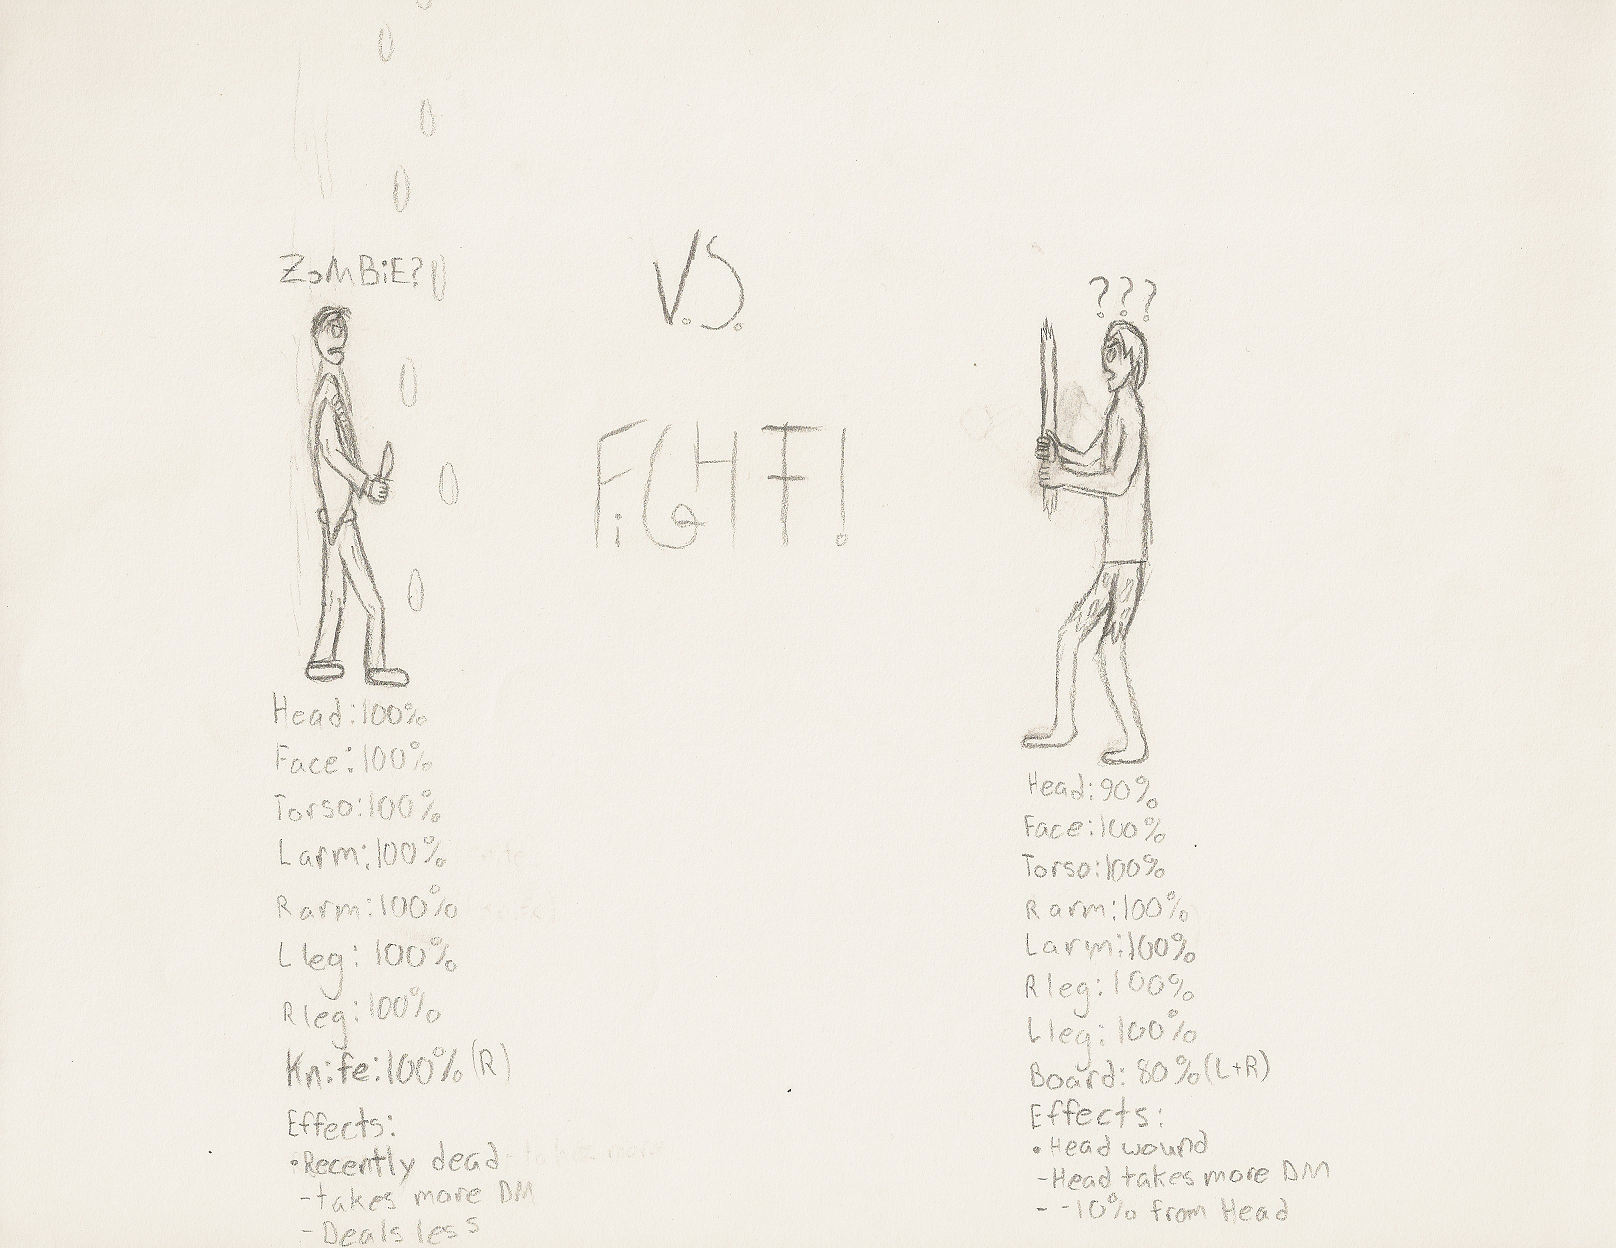 ZoMBiE?
V.S.
???
FiGHT!
Head:100%
Face:100%
Torso:100%
Larm:100%
Rarm:100%
Lleg:100%
Rleg:100%
Knife:100%(R)
Effects:
•Recently dead
-takes more DM
-Deals less
Head:90%
Face:100%
Torso:100%
Rarm:100%
Larm:100%
Rleg:100%
Lleg:100%
Board:80%(L+R)
Effects:
•Head wound
-Head takes more DM
- -10% from Head